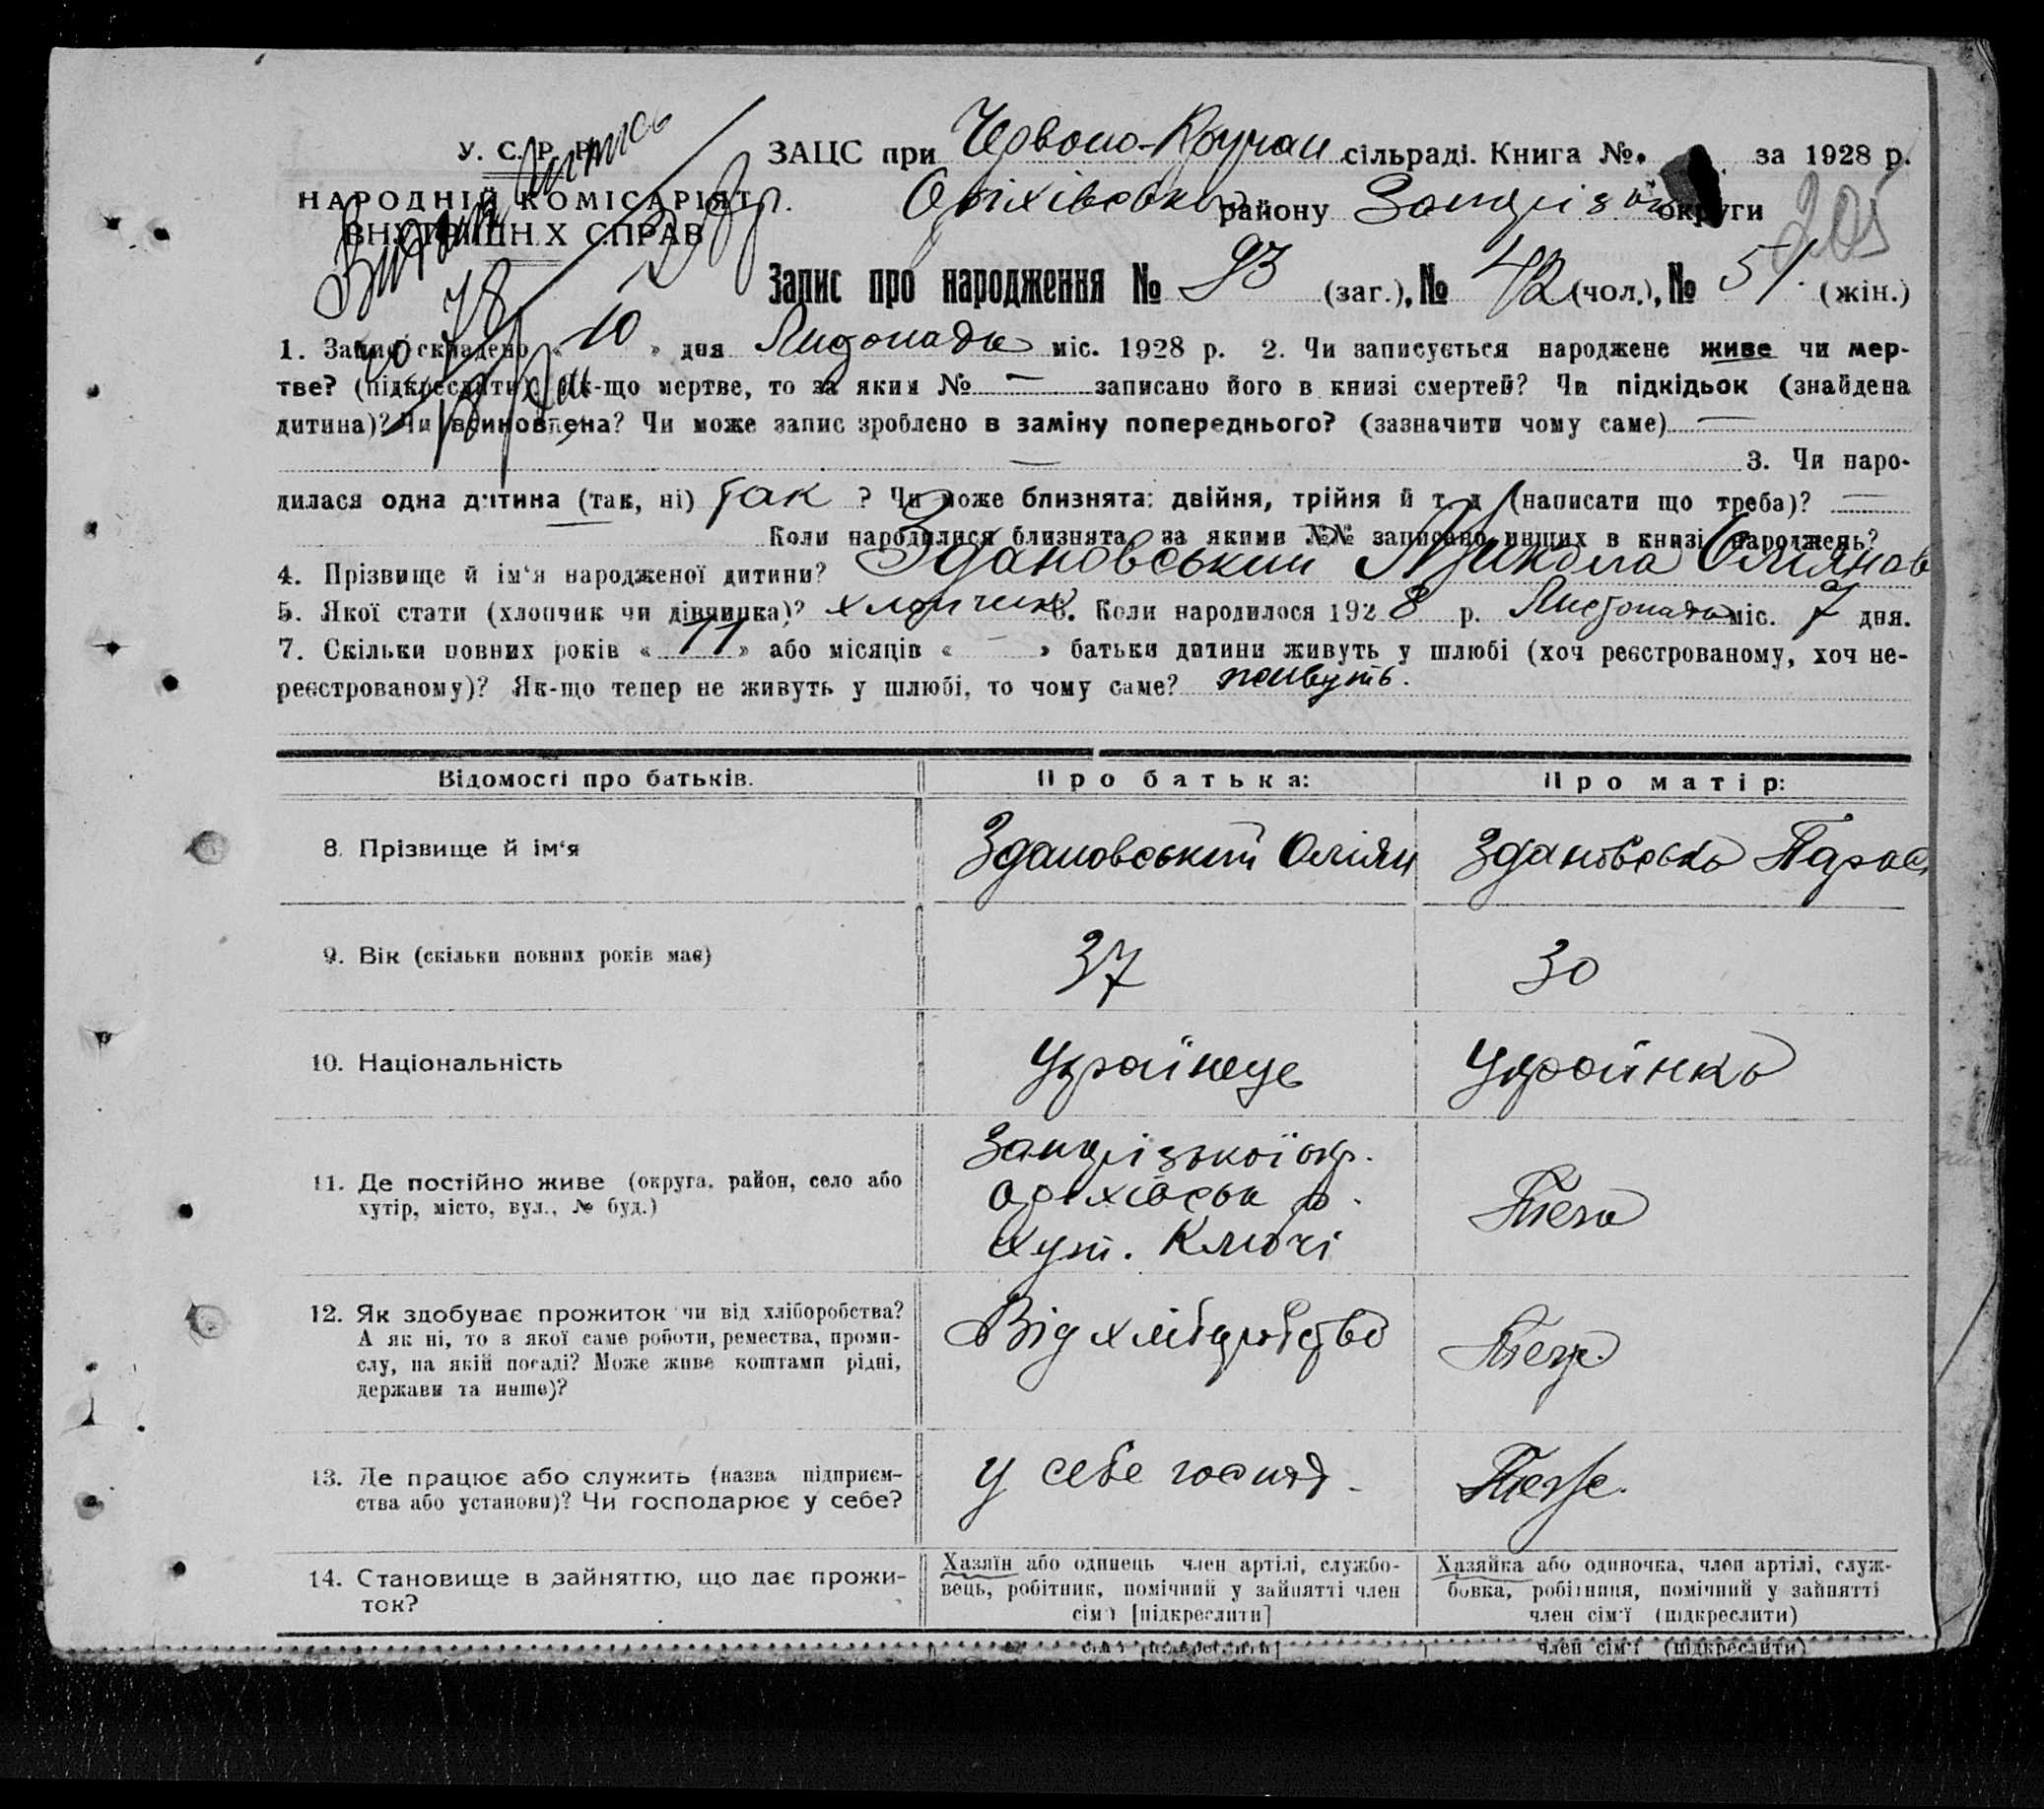 У. С. Р. Р.
НАРОДНІЙ КОМІСАРІЯТ
ВНУТРІШН Х СПРАВ
ЗАЦС при Червоно-Кручан сільраді. Книга №. за 1928 р.
Оріхівськ району Запоріз округи
205
Запис про народження № 93 (заг.), № 42 (чол.), № 51. (жін.)
1. Запис складено « 10 » дня Листопада міс. 1928 р. 2. Чи записується народжене живе чи мер-
тве? (підкреслити) Як-що мертве, то за яким № — записано його в книзі смертей? Чи підкідьок (знайдена
дитина)? Чи всиновлена? Чи може запис зроблено в заміну попереднього? (зазначити чому саме) —
— 3. Чи наро-
дилася одна дитина (так, ні) так ? Чи може близнята: двійня, трійня й т. д (написати що треба)? —
Коли народилися близнята, за якими №№ записано инших в книзі народжень?
4. Прізвище й ім'я народженої дитини? Здановський Микола Оліянов
5. Якої стати (хлопчик чи дівчинка)? хлопчик 6. Коли народилося 1928 р. Листопада міс. 7 дня.
7. Скільки повних років « 11 » або місяців « — » батьки дитини живуть у шлюбі (хоч реєстрованому, хоч не-
реєстрованому)? Як-що тепер не живуть у шлюбі, то чому саме? живуть.
Відомості про батьків. Про батька: Про матір:
8. Прізвище й ім'я Здановський Оліян Здановська Парас
9. Вік (скільки повних років має) 37 30
10. Національність Українець Українка
11. Де постійно живе (округа, район, село або
хутір, місто, вул., № буд.)
Запорізької окр.
Оріхівськ р.
хут. Ключі
Теж
12. Як здобуває прожиток чи від хліборобства?
А як ні, то з якої саме роботи, ремества, проми-
слу, на якій посаді? Може живе коштами рідні,
держави та инше)?
Від хліборобства
Теж
13. Де працює або служить (назва підприєм-
ства або установи)? Чи господарює у себе?
у себе господ.
Теж
14. Становище в зайняттю, що дає прожи-
ток?
Хазяїн або одинець член артілі, службо-
вець, робітник, помічний у зайнятті член
сім'ї [підкреслити]
Хазяйка або одиночка, член артілі, служ-
бовка, робітниця, помічний у зайнятті
член сім'ї (підкреслити)
член сім'ї (підкреслити)